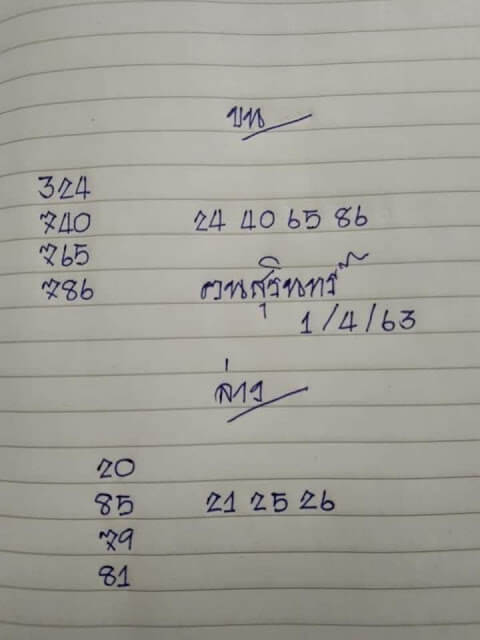 บน
324
740 24 40 65 86
765
786 คนสุรินทร์
1/4/63
ล่าง
20
85 21 25 26
79
81